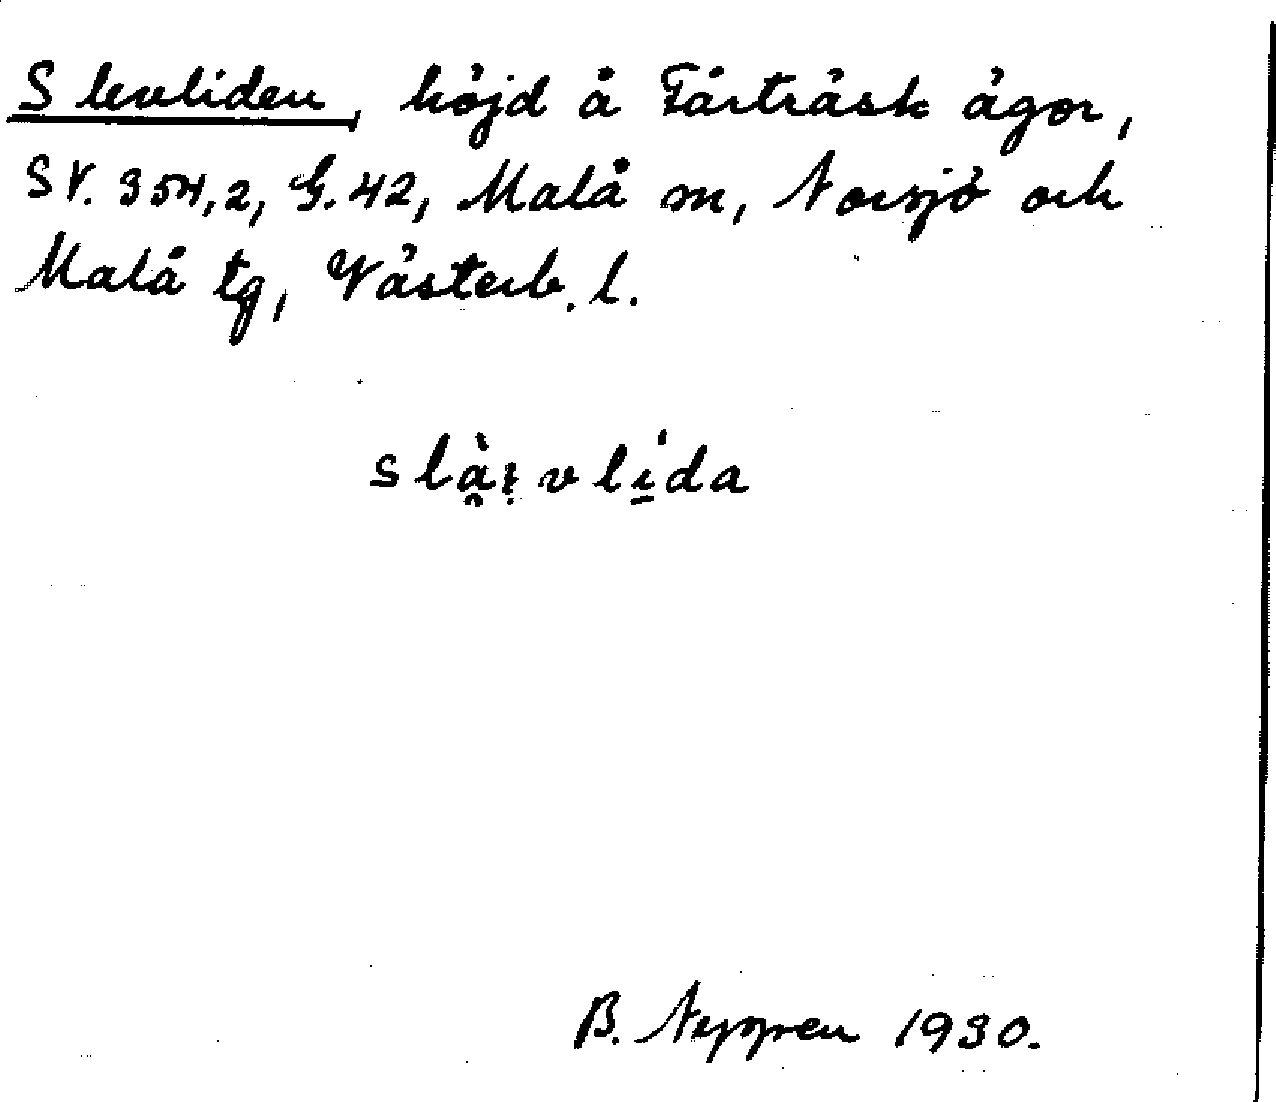 Slevliden, höjd å Tärträsk ägor,
SV. 354,2, G. 42, Malå sn, Norsjö och
Malå tg, Västerb. l.
slàɪvlída
B. Nygren 1930.